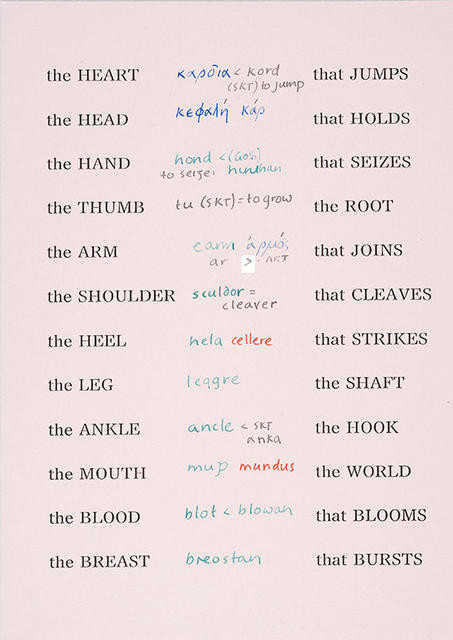 the HEART καρδια < kord that JUMPS
(SKT) to jump
the HEAD κεφαλή κάρ that HOLDS
the HAND hond < (Goth) that SEIZES
to seize: hinthan
the THUMB tu (SKT) = to grow the ROOT
the ARM earm άρμός that JOINS
ar > ART
the SHOULDER sculdor = that CLEAVES
cleaver
the HEEL hela cellere that STRIKES
the LEG leggre the SHAFT
the ANKLE ancle < SKT the HOOK
anka
the MOUTH muþ mundus the WORLD
the BLOOD blot < blowan that BLOOMS
the BREAST breostan that BURSTS